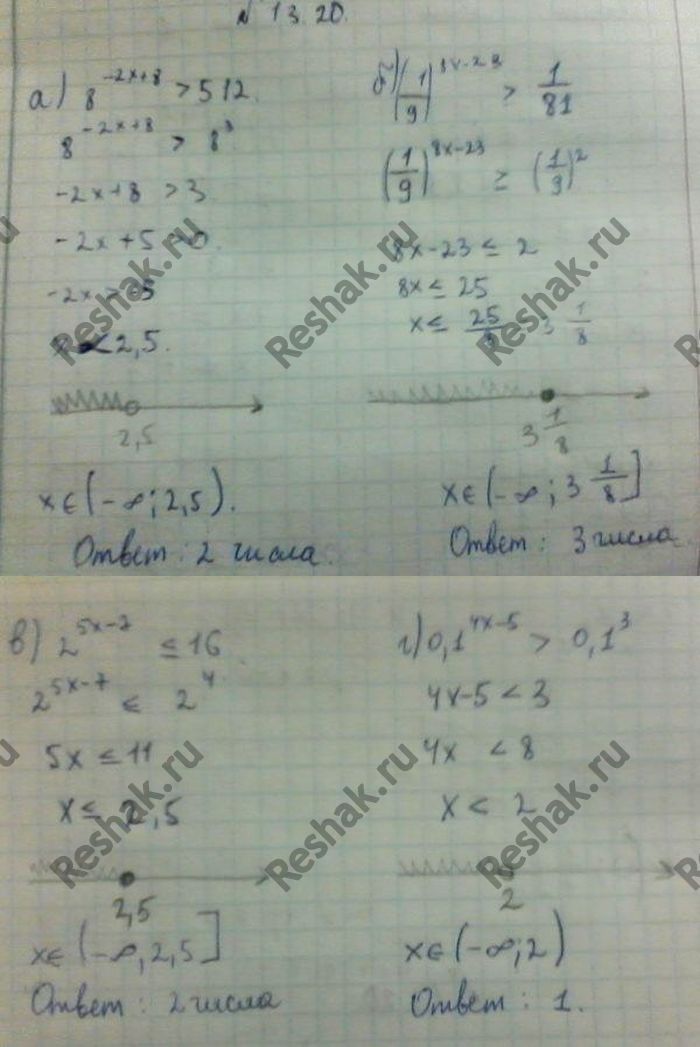 № 13.20.
а) 8^(-2x+8) > 512.
8^(-2x+8) > 8^3
-2x+8 > 3
-2x+5 > 0
-2x > -5
x < 2,5.
2,5
x∈(-∞; 2,5).
Ответ: 2 числа.
б) (1/9)^(8x-23) > 1/81
(1/9)^(8x-23) ≥ (1/9)^2
8x-23 ≤ 2
8x ≤ 25
x ≤ 25/8 3 1/8
3 1/8
x∈(-∞; 3 1/8]
Ответ: 3 числа
в) 2^(5x-7) ≤ 16
2^(5x-7) ≤ 2^4
5x ≤ 11
x ≤ 2,5
2,5
x∈(-∞, 2,5]
Ответ: 2 числа
г) 0,1^(4x-5) > 0,1^3
4x-5 < 3
4x < 8
x < 2
2
x∈(-∞; 2)
Ответ: 1.
Reshak.ru
Reshak.ru
Reshak.ru
Reshak.ru